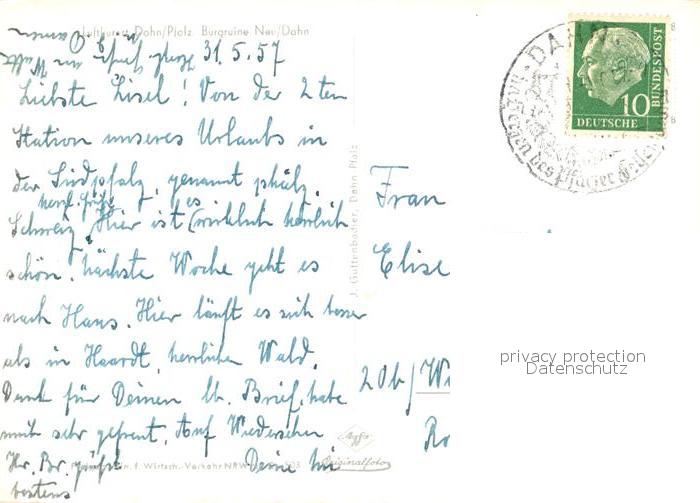 Luftkurort Dahn/Pfalz. Burgruine Neu/Dahn
31.5.57
Liebste Lisel! Von der 2ten
Station unseres Urlaubs in
der Südpfalz, genannt pfälz.
Schweiz, herzl. Grüße
Hier ist es wirklich herrlich
schön. Nächste Woche geht es
nach Haus. Hier läuft es sich besser
als in Haardt, herrlicher Wald.
Dank für Deinen lb. Brief, habe
mich sehr gefreut. Auf Wiedersehen
Hr. Br. grüßt Deine
bestens
J. Guttenbacher, Dahn Pfalz
f. Wirtsch.-Verkehr NRW
503
Agfa
Originalfoto
Frau
Elise
20b/
DAHN
des Pfälzer
DEUTSCHE
BUNDESPOST
10
privacy protection
Datenschutz